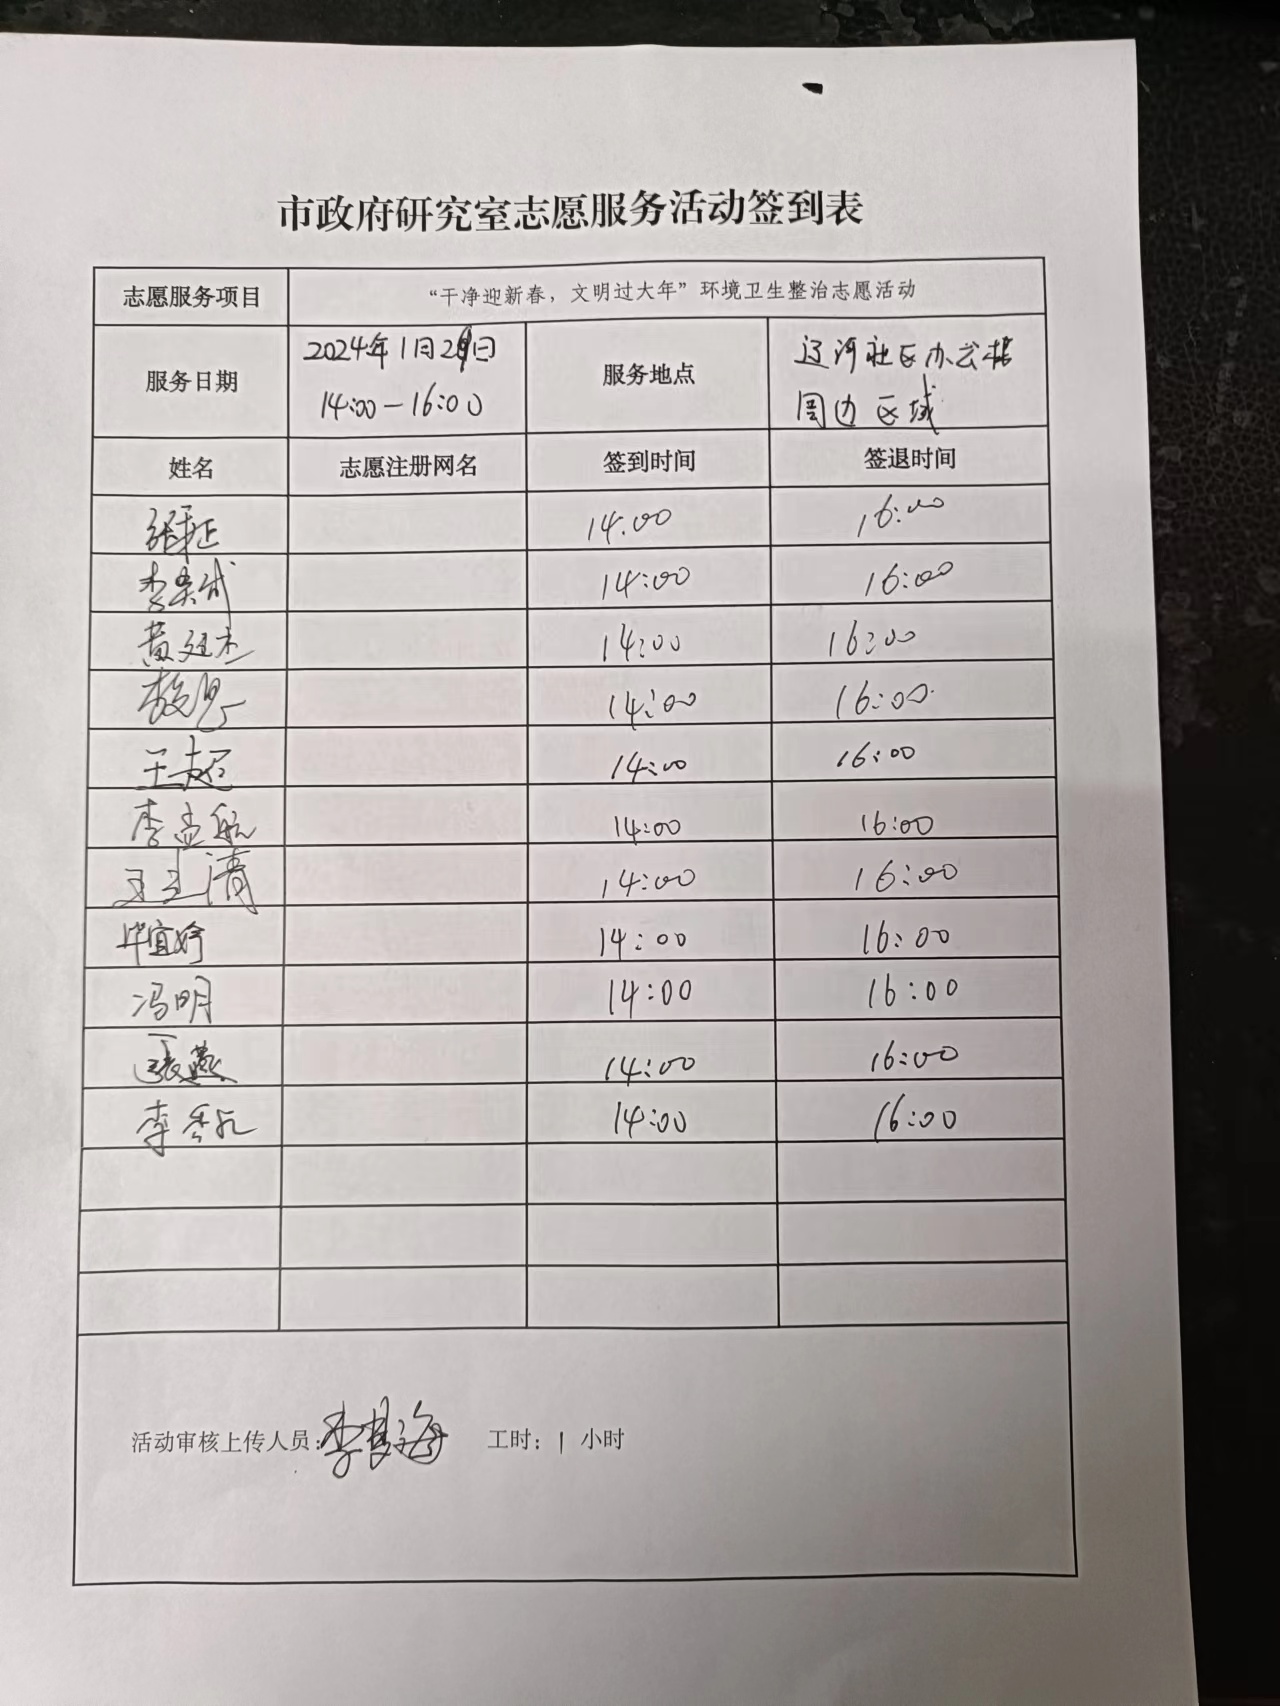 市政府研究室志愿服务活动签到表
志愿服务项目 “干净迎新春，文明过大年”环境卫生整治志愿活动
服务日期 2024年1月29日 14:00-16:00 服务地点 辽河社区办公楼 周边区域
姓名 志愿注册网名 签到时间 签退时间
14:00 16:00
14:00 16:00
黄廷杰 14:00 16:00
14:00 16:00
王超 14:00 16:00
李孟航 14:00 16:00
清 14:00 16:00
毕宜婷 14:00 16:00
冯明 14:00 16:00
张燕 14:00 16:00
李 14:00 16:00
活动审核上传人员: 李 海 工时: 1 小时